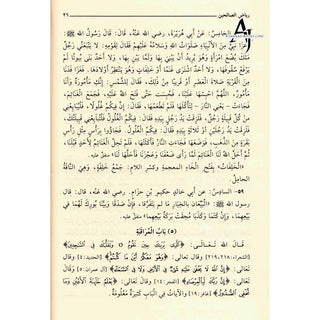 رياض الصالحين ٢٦
الخامِسُ: عَنْ أبي هُرَيْرَةَ، رضي الله عنه، قال: قالَ رَسُولُ الله ﷺ
نَبِيٌّ مِنَ الأَنْبِيَاءِ صَلَوَاتُ اللهِ وَسَلَامُهُ عَلَيْهِمْ فَقَالَ لِقَوْمِهِ: لا يَتْبَعَنِّي رَجُلٌ
مَلَكَ بُضْعَ امْرَأَةٍ وَهُوَ يُرِيدُ أَنْ يَبْنِيَ بِهَا وَلَمَّا يَبْنِ بِهَا، وَلا أَحَدٌ بَنَى بُيُوتاً لَمْ
يَرْفَعْ سُقُوفَهَا، وَلا أَحَدٌ اشْتَرَى غَنَماً أَوْ خَلِفَاتٍ وَهُوَ يَنْتَظِرُ أَوْلادَهَا. فَغَزَا فَدَنَا
مِنَ الْقَرْيَةِ صَلاةَ الْعَصْرِ أَوْ قَرِيباً مِنْ ذلِكَ، فَقَالَ لِلشَّمْسِ: إِنَّكِ مَأْمُورَةٌ وَأَنَا
مَأْمُورٌ، اللَّهُمَّ احْبِسْهَا عَلَيْنَا، فَحُبِسَتْ حَتَّى فَتَحَ اللهُ عَلَيْهِ، فَجَمَعَ الْغَنَائِمَ،
فَجَاءَتْ - يَعْنِي النَّارَ - لِتَأْكُلَهَا فَلَمْ تَطْعَمْهَا، فَقَالَ: إِنَّ فِيكُمْ غُلُولاً، فَلْيُبَايِعْنِي
مِنْ كُلِّ قَبِيلَةٍ رَجُلٌ، فَلَزِقَتْ يَدُ رَجُلٍ بِيَدِهِ فَقَالَ: فِيكُمُ الْغُلُولُ فَلْتُبَايِعْنِي قَبِيلَتُكَ،
فَلَزِقَتْ يَدُ رَجُلَيْنِ أَوْ ثَلاثَةٍ بِيَدِهِ فَقَالَ: فِيكُمُ الْغُلُولُ، فَجَاؤُوا بِرَأْسٍ مِثْلِ رَأْسِ
بَقَرَةٍ مِنَ الذَّهَبِ، فَوَضَعَهَا فَجَاءَتِ النَّارُ فَأَكَلَتْهَا، فَلَمْ تَحِلَّ الْغَنَائِمُ لأَحَدٍ قَبْلَنَا،
ثُمَّ أَحَلَّ اللهُ لَنَا الْغَنَائِمَ لَمَّا رَأَى ضَعْفَنَا وَعَجْزَنَا فَأَحَلَّهَا لَنَا» متفقٌ عليه.
«الْخَلِفَاتُ» بفتحِ الخاءِ المعجمةِ وكسرِ اللامِ: جَمْعُ خَلِفَةٍ، وَهِيَ النَّاقَةُ
الحامِلُ.
٥٩ - السادِسُ: عن أبي خالدٍ حكيمِ بنِ حِزَامٍ، رضي الله عنه، قال: قال
رسولُ الله ﷺ: «الْبَيِّعَانِ بِالْخِيَارِ مَا لَمْ يَتَفَرَّقَا، فَإِنْ صَدَقَا وَبَيَّنَا بُورِكَ لَهُمَا في
بَيْعِهِمَا، وَإِنْ كَتَمَا وَكَذَبَا مُحِقَتْ بَرَكَةُ بَيْعِهِمَا» متفقٌ عليه.
(٥) بَابُ الْمُرَاقَبَةِ
قَالَ اللهُ تَعَالَى: ﴿الَّذِي يَرَاكَ حِينَ تَقُومُ ۝ وَتَقَلُّبَكَ فِي السَّاجِدِينَ﴾
[الشعراء: ٢١٨، ٢١٩] وقال تعالى: ﴿وَهُوَ مَعَكُمْ أَيْنَ مَا كُنْتُمْ﴾ [الحديد: ٤] وقال
تعالى: ﴿إِنَّ اللهَ لا يَخْفَى عَلَيْهِ شَيْءٌ فِي الأَرْضِ وَلا فِي السَّمَاءِ﴾ [آل عمران: ٥] وقال
تعالى: ﴿إِنَّ رَبَّكَ لَبِالْمِرْصَادِ﴾ [الفجر: ١٤] وقال تعالى: ﴿يَعْلَمُ خَائِنَةَ الأَعْيُنِ وَمَا
تُخْفِي الصُّدُورُ﴾ [غافر: ١٩] والآياتُ في البابِ كَثِيرَةٌ مَعْلُومَةٌ.